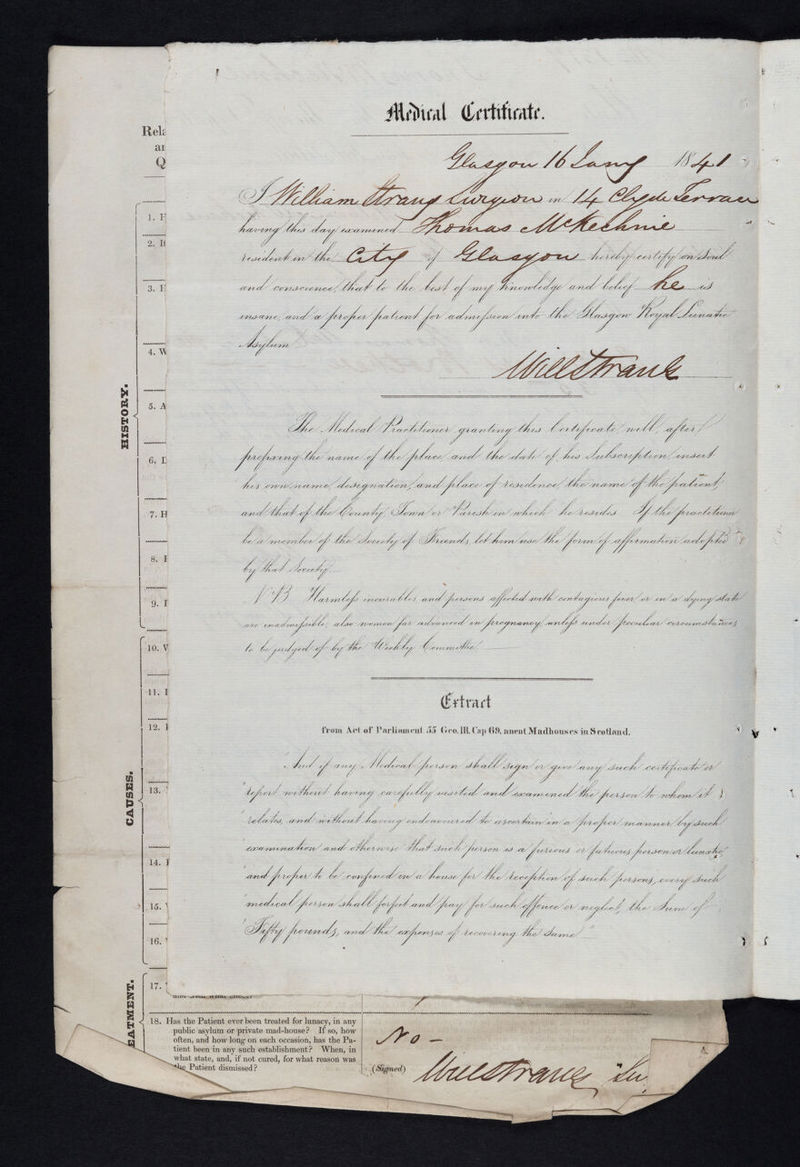 Medical Certificate.
Glasgow 16 Jany 1841
I William Strang Surgeon in 14 Clyde Terrace
having this day examined Thomas McKechnie
resident in the City of Glasgow hereby certify on soul
and conscience, that to the best of my knowledge and belief he is
insane, and a proper patient for admission into the Glasgow Royal Lunatic
Asylum
Will Strang
The Medical Practitioner granting this Certificate will, after
prefixing the name of the place and the date of his Subscription, insert
his own name, designation, and place of residence, the name of the patient,
and that of the County Town or Parish in which he resides. If the practitioner
be a member of the Society of Friends, let him use the form of affirmation adopted
by that Society.
N.B. Harmless incurables and persons affected with contagious fever or in a dying state
are inadmissible, also women far advanced in pregnancy unless under peculiar circumstances,
to be judged of by the Weekly Committee.
Extract
from Act of Parliament 55 Geo. III. Cap 69. anent Madhouses in Scotland.
"And if any Medical person shall sign or give any such certificate or
"report without having carefully visited and examined the person to whom it
"relates, and without having endeavoured to ascertain in a proper manner by such
"examination and otherwise that such person is a furious or fatuous person or lunatic,
"and proper to be confined in a house for the reception of such persons, every such
"medical person shall forfeit and pay for such offence or neglect, the Sum of
"Fifty pounds, and the expenses of recovering the same."
Rela
an
Q
HISTORY.
1. H
2. It
3. H
4. W
5. A
6. I
7. H
8. I
9. I
CAUSES.
10. V
11. I
12. I
13.
14. I
15.
16.
EATMENT.
17.
18. Has the Patient ever been treated for lunacy, in any
public asylum or private mad-house? If so, how
often, and how long on each occasion, has the Pa-
tient been in any such establishment? When, in
what state, and, if not cured, for what reason was
the Patient dismissed?
No -
(Signed) Will Strang Su